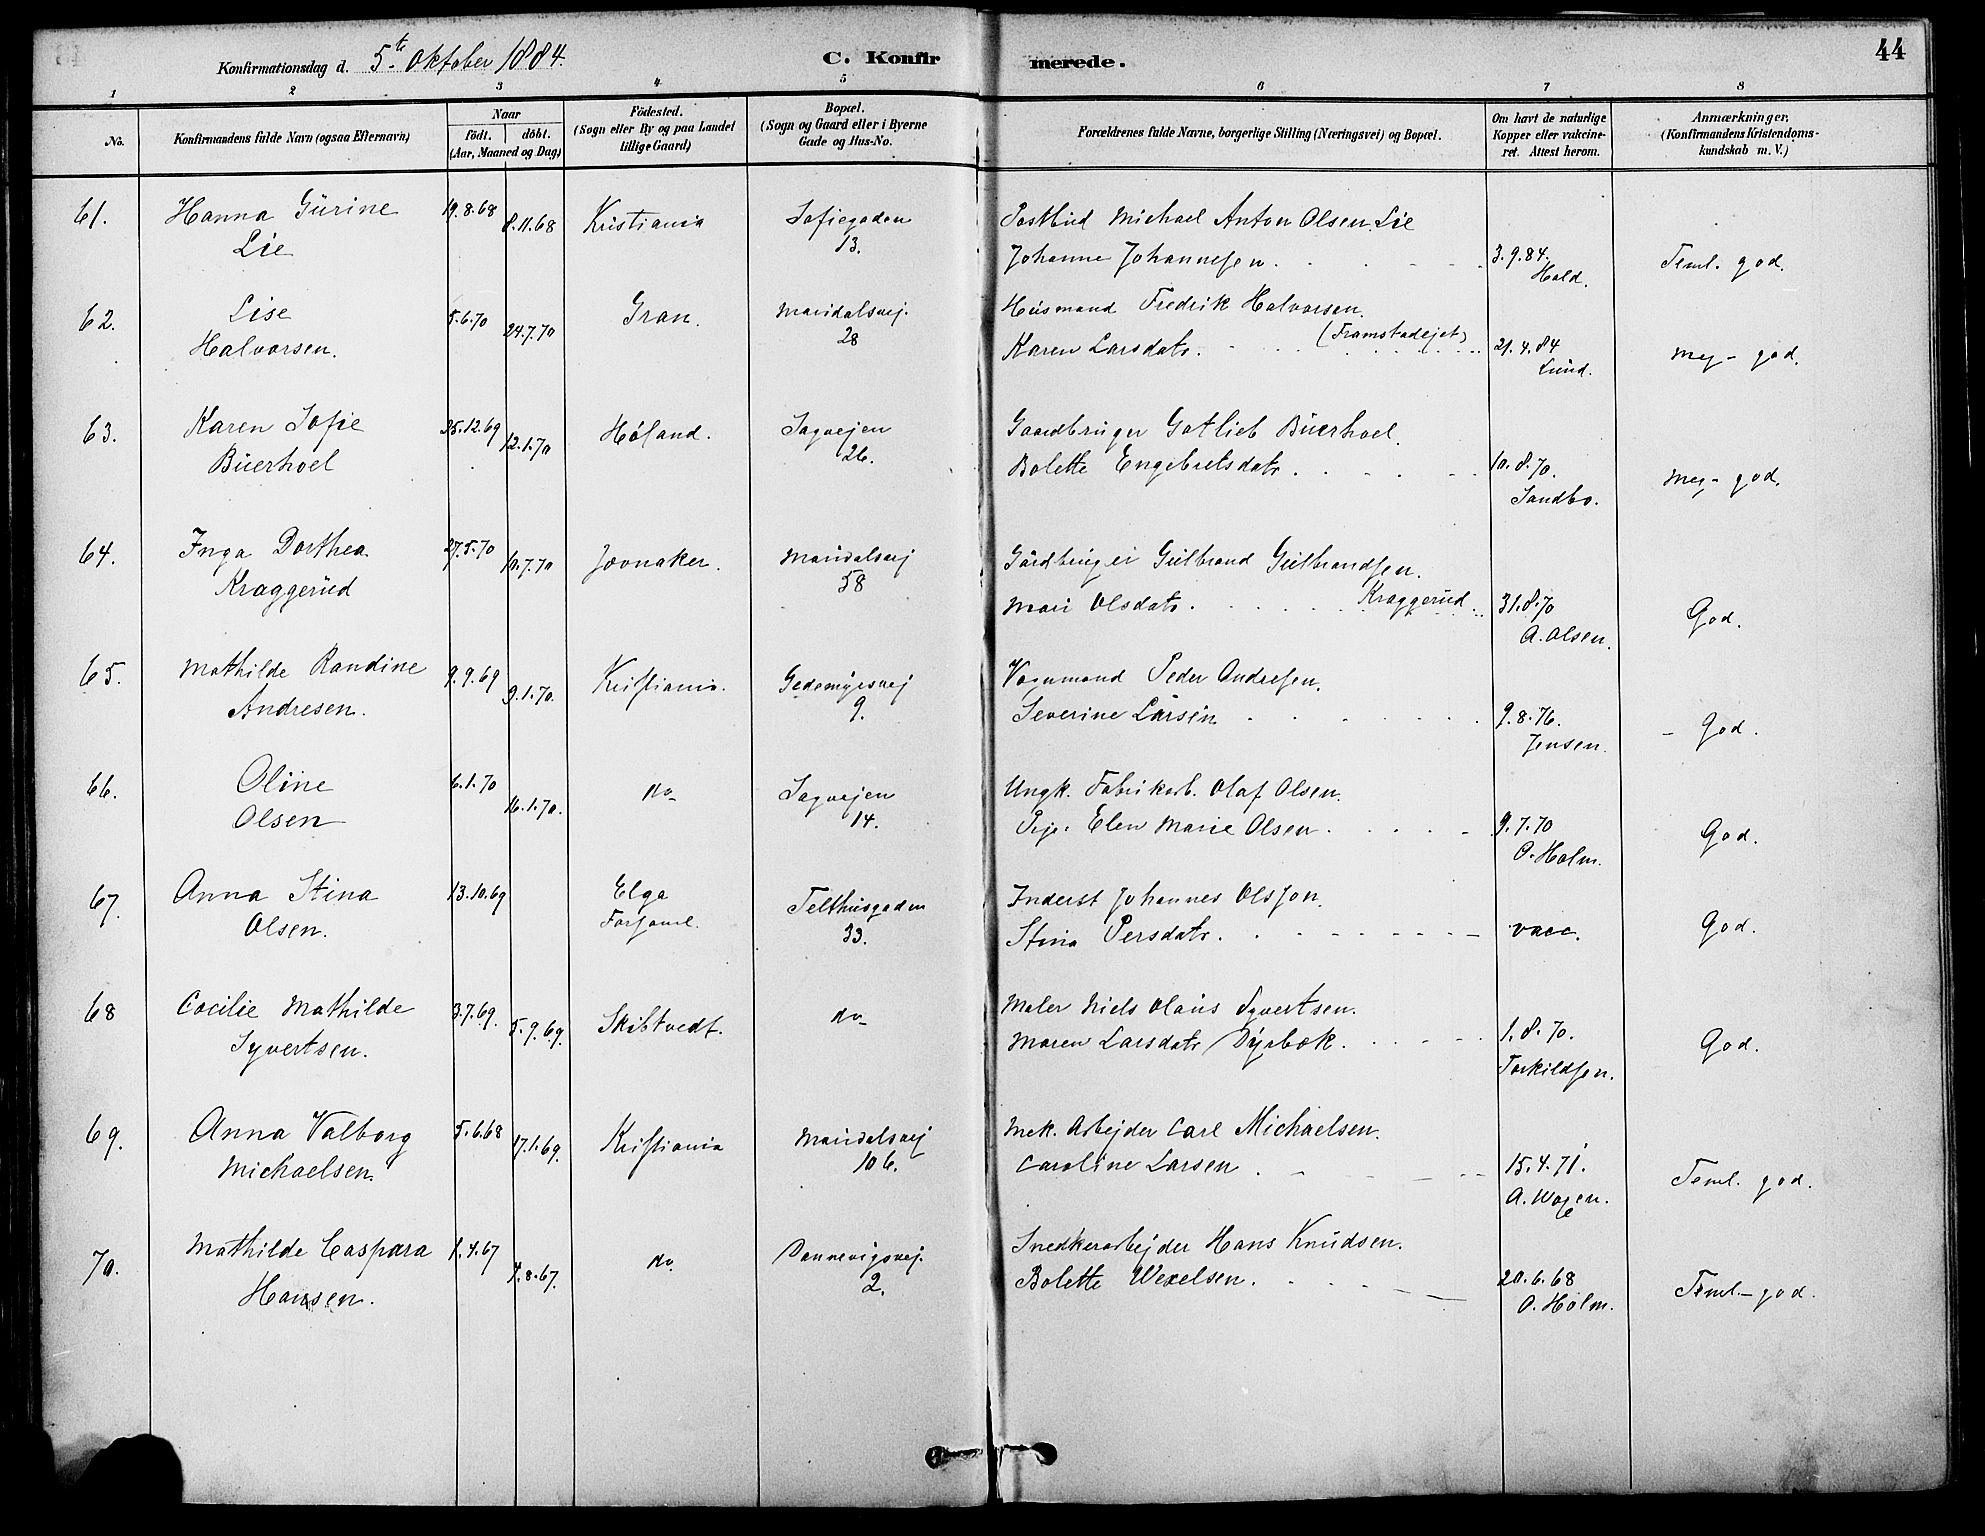 Konfirmationsdag d. 5te Oktober 1884.
C. Konfirmerede.
44
1 2 3 4 5 6 7 8
No.
Konfirmandens fulde Navn (ogsaa Efternavn)
Naar
födt. döbt.
(Aar, Maaned og Dag)
Födested.
(Sogn eller By og paa Landet
tillige Gaard)
Bopæl.
(Sogn og Gaard eller i Byerne
Gade og Hus-No.
Forældrenes fulde Navne, borgerlige Stilling (Næringsvei) og Bopæl.
Om havt de naturlige
Kopper eller vakcine-
ret. Attest herom.
Anmærkninger.
(Konfirmandens Kristendoms-
kundskab m. V.)
61. Hanna Gurine 19.8.68 8.11.68 Kristiania Sofiegaden Postbud Michael Anton Olsen Lie
Lie 13. Johanne Johannesen. 3.9.84. Teml. god.
Hald.
62. Lise 5.6.70 24.7.70 Gran. Maridalsvej. Husmand Fredrik Halvorsen.
Halvorsen. 28 Karen Larsdatr. (Framstadejet) 21.4.84 Meg- god.
Lund.
63. Karen Sofie 25.12.69 12.1.70 Höland. Sagvejen Gaardbruger Gotlieb Buerhoel.
Buerhoel 26. Bolette Engebretsdatr. 10.8.70. Meg- god.
Sandbo.
64. Inga Dorthea 27.5.70 10.7.70 Jevnaker. Maridalsvej Gårdbruger Gulbrand Gulbrandsen.
Kraggerud 58 Mari Olsdatr. Kraggerud. 31.8.70 God.
A. Olsen.
65. Mathilde Randine 9.9.69 9.1.70. Kristiania. Gedemyrsvej Vognmand Peder Andresen.
Andresen. 9. Severine Larsen 9.8.76. - God.
Jensen.
66. Oline 6.1.70 16.1.70. do- Sagvejen Ungk. Fabrikarb. Olaf Olsen.
Olsen 14. Pige. Elen Marie Olsen. 9.7.70 God.
O. Holm.
67. Anna Stina 13.10.69 Elga Telthusgaden Inderst Johannes Olsson.
Olsen. Forsaml. 33. Stina Persdatr. vacc. God.
68 Cecilie Mathilde 3.7.69. 5.9.69. Skibtvedt. do- Maler Niels Olaus Syvertsen.
Syvertsen. Maren Larsdatr Dyrbek. 1.8.70. God.
Torkildsen.
69. Anna Valborg 5.6.68 17.1.69. Kristiania Maridalsvej Mek. Arbejder Carl Michaelsen.
Michaelsen. 106. Caroline Larsen 15.4.71. Teml. god.
A. Wogen.
70. Mathilde Caspara 1.4.67 4.8.67. do. Dannevigsvej. Snedkerarbejder Hans Knudsen.
Hansen. 2. Bolette Wexelsen. 20.6.68 Teml- god.
O. Holm.